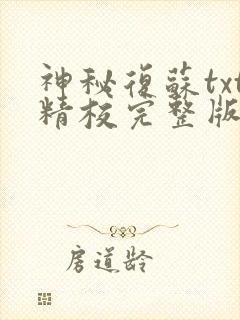 神秘復蘇txt
精校完整版
房道龄